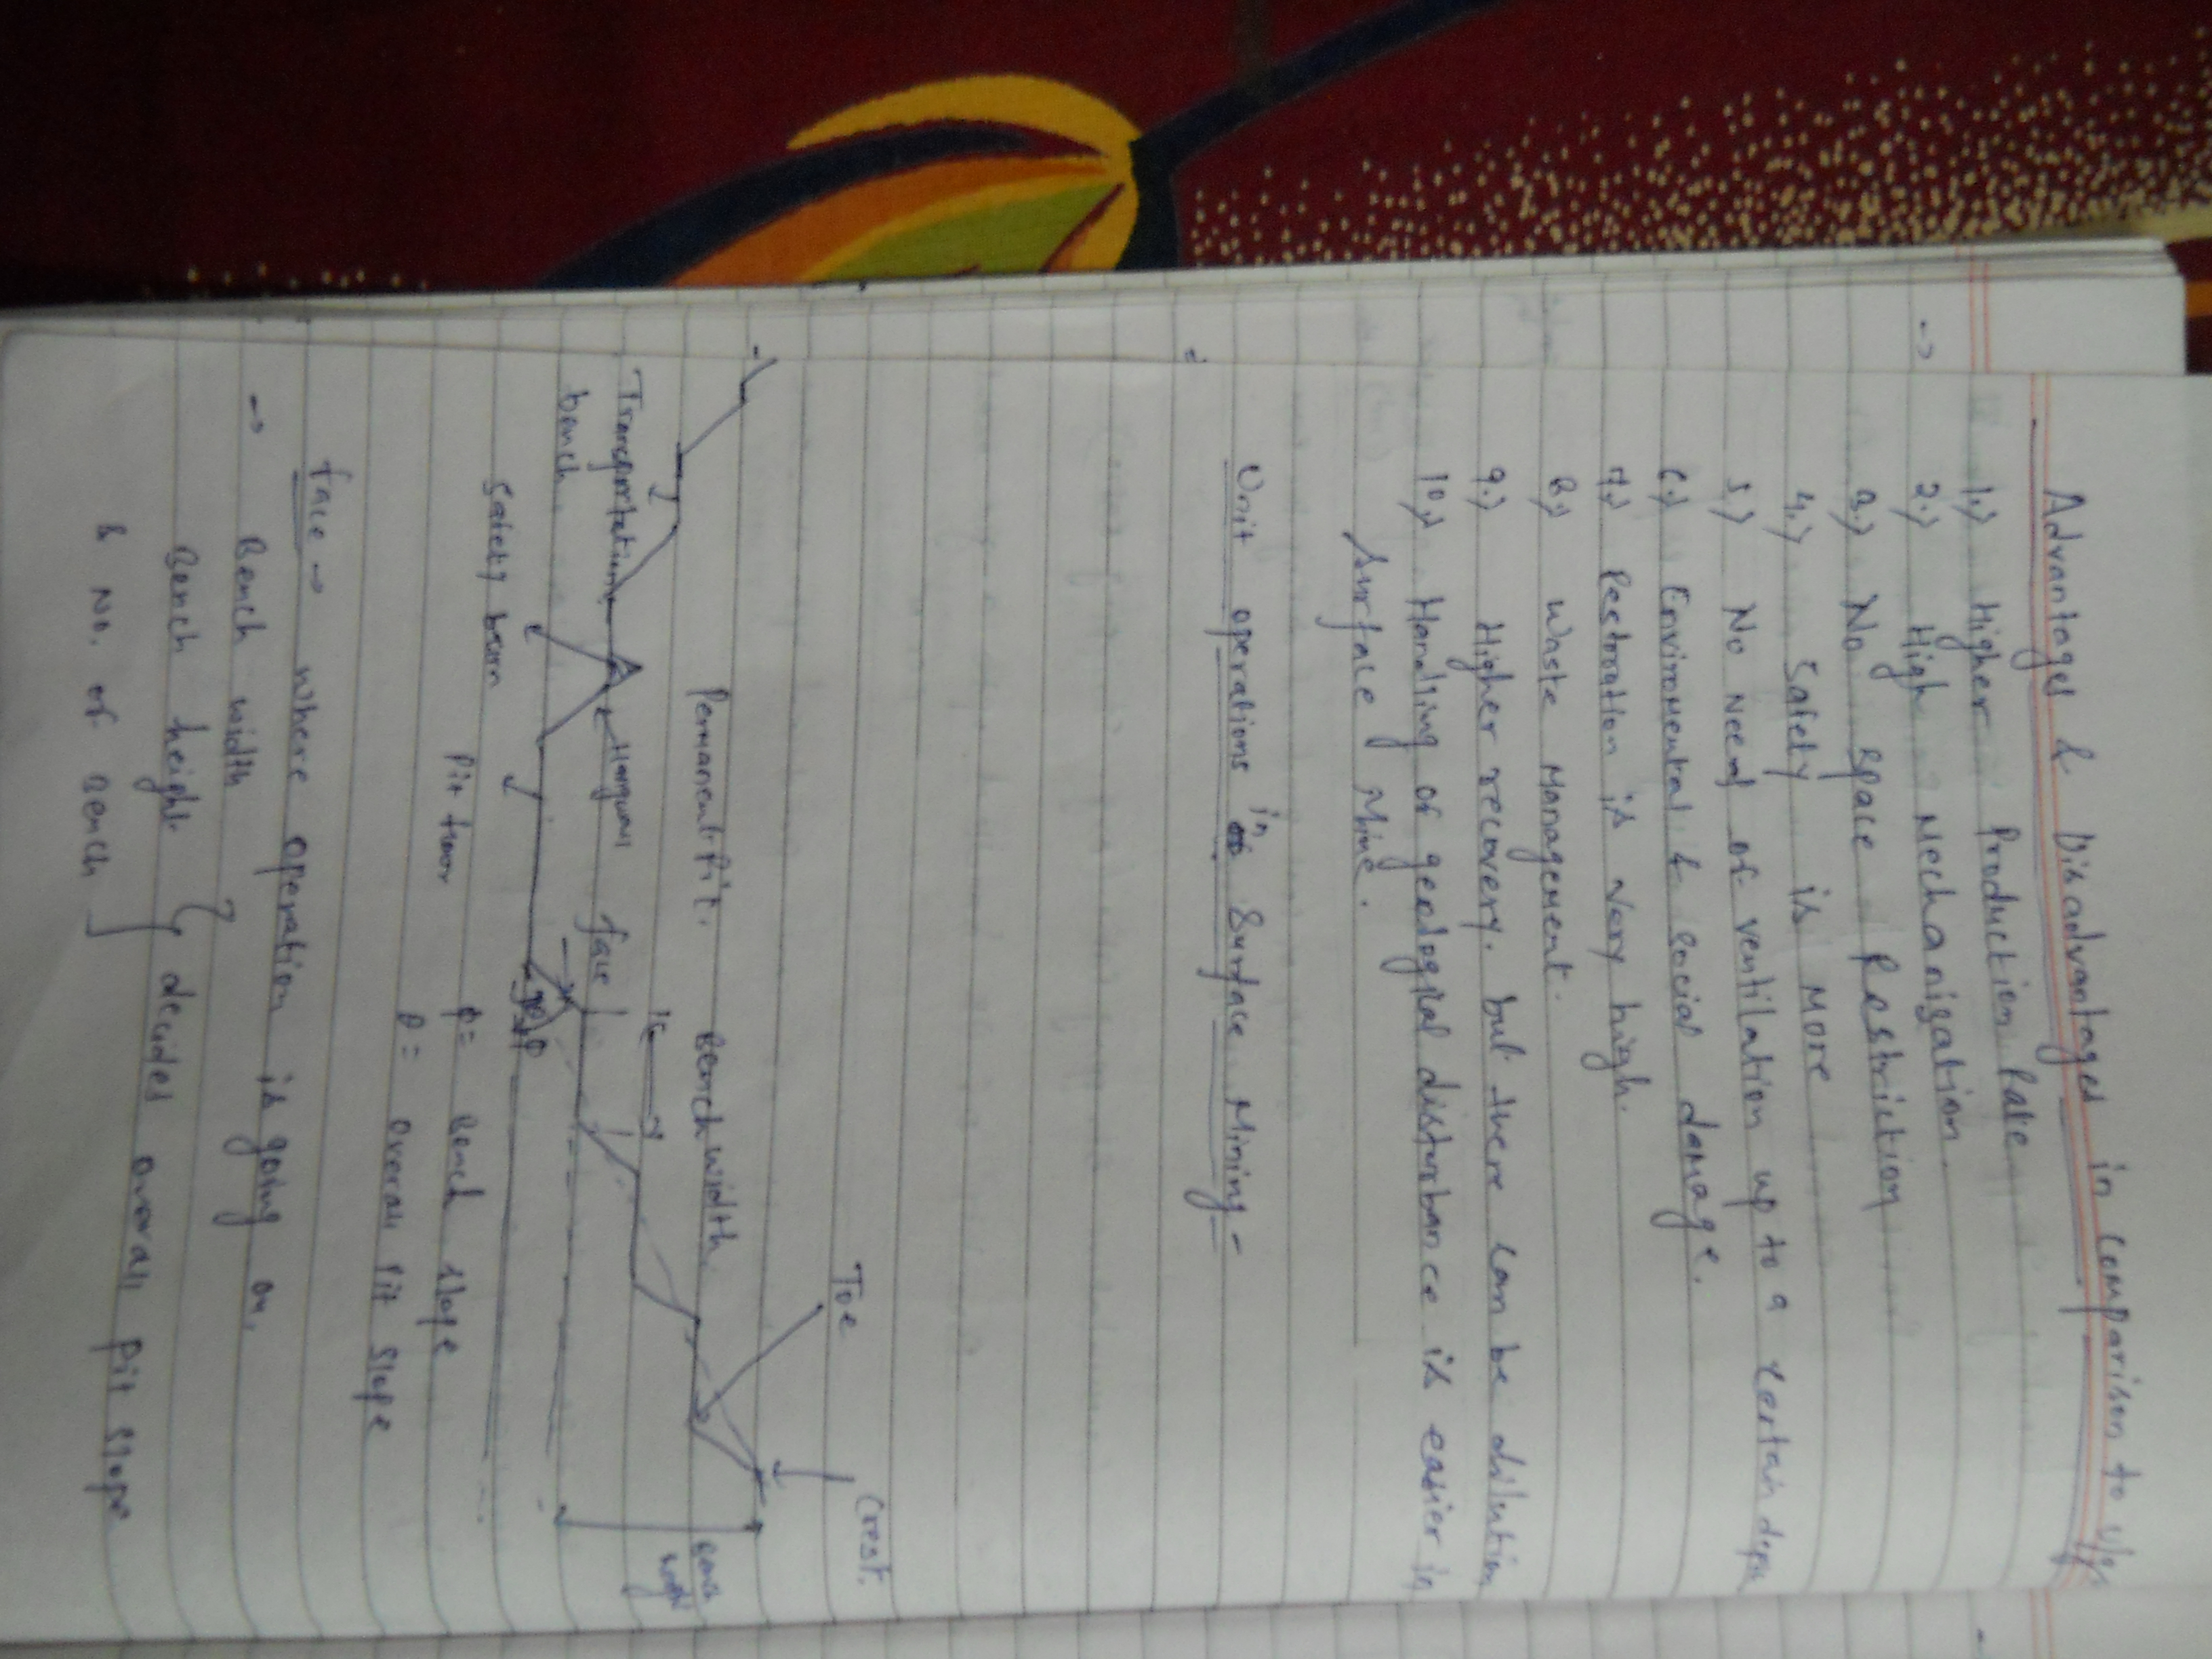 Advantages & Disadvantages in comparison to u/g
1.) Higher Production Rate
2.) High Mechanisation
3.) No Space Restriction
4.) Safety is More
5.) No Need of ventilation up to a certain depth
6.) Enviromental & social damage.
7.) Restroation is very high.
8.) Waste Management.
9.) Higher recovery. but there can be dilution
10.) Handling of geological disturbance is easier in
Surface Mine.
Unit operations in Surface Mining -
Toe
Crest.
Permanent Pit.
Bench width
Transportation
bench
face
Safety berm
Pit floor
ϕ = Bench slope
θ = overall Pit slope
face → where operation is going on.
→ Bench width
Bench height decides overall pit slope
& No. of Bench